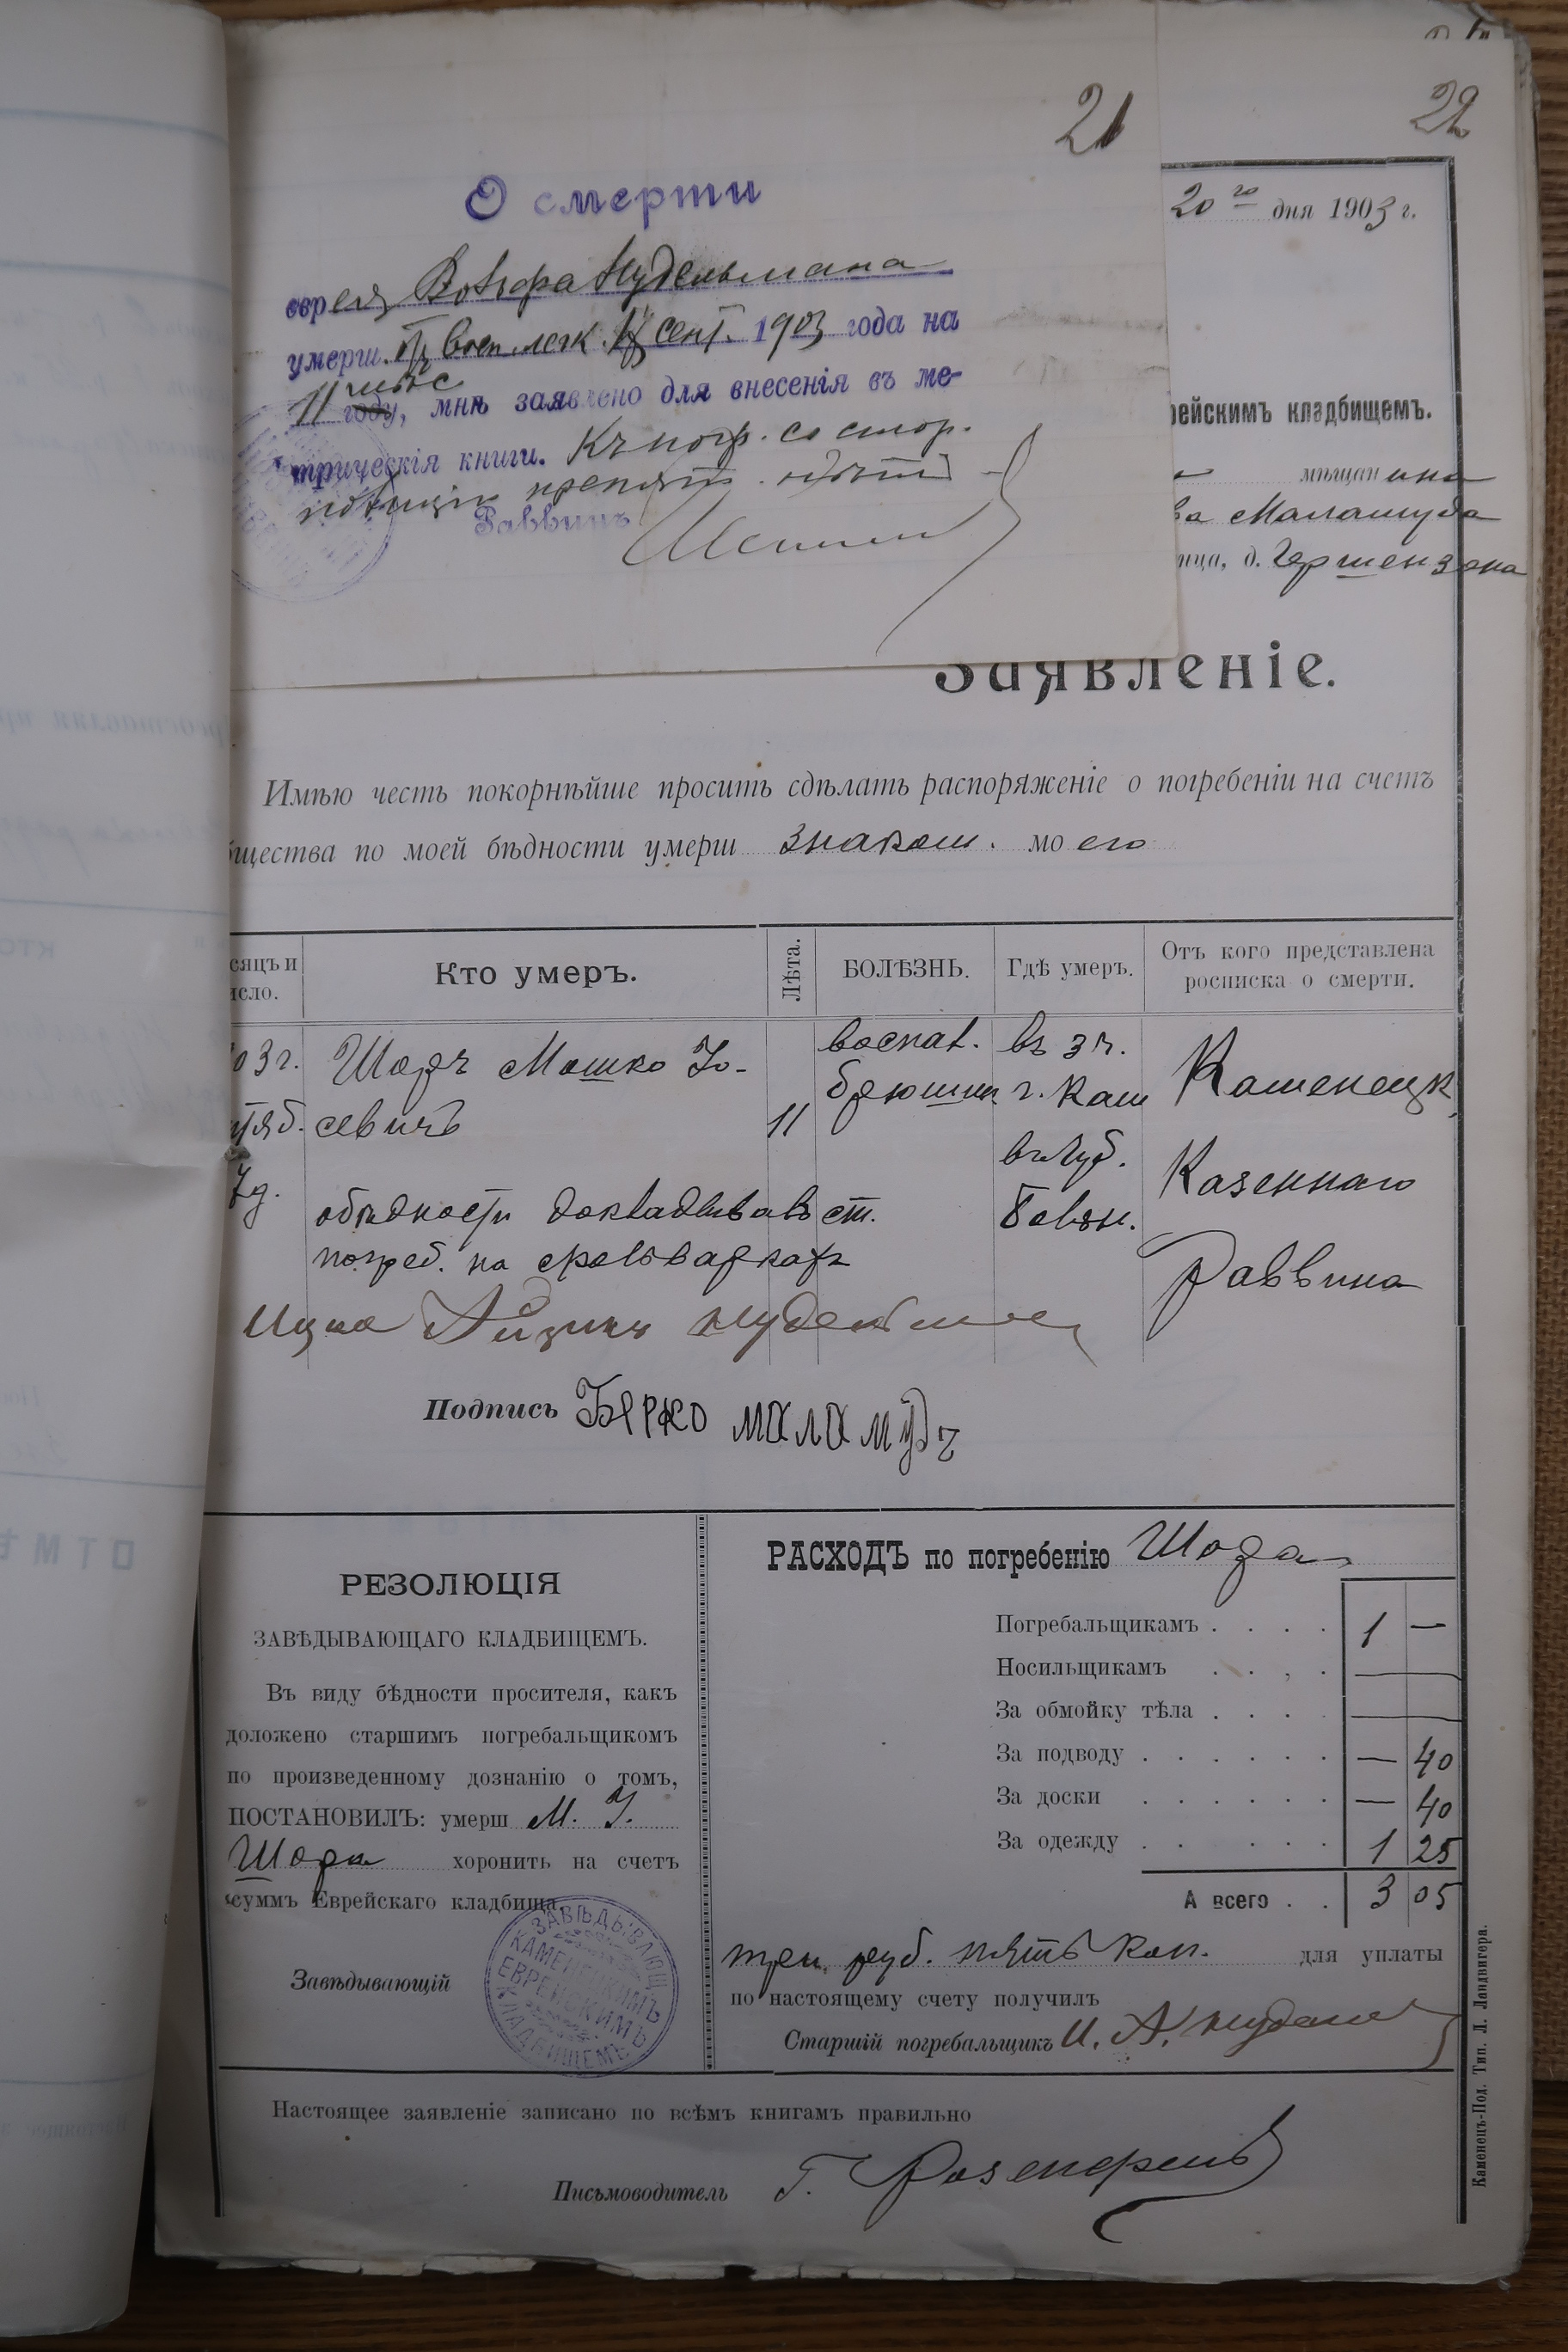 21
22
О смерти
еврея Вольфа Нудельмана
умерш. от восп. легк. сент. 1903 года на
11 мѣс
году, мнѣ заявлено для внесенія въ ме-
трическія книги. Къ погр. со стор.
полиціи препят. нѣтъ
Раввинъ
20 го дня 1903 г.
рейскимъ кладбищемъ.
мѣщанина
ва Маламуда
ица, д. Гершензона
Заявленіе.
Имѣю честь покорнѣйше просить сдѣлать распоряженіе о погребеніи на счетъ
бщества по моей бѣдности умерш знаком. моего
сяцъ и
исло.
Кто умеръ.
Лѣта.
БОЛѢЗНЬ.
Гдѣ умеръ.
Отъ кого представлена
росписка о смерти.
03 г. Шоръ Мошко Іо-
севичъ
11
воспал.
брюшин.
въ
г. Кам
Каменецк.
Казеннаго
Раввина
тяб.
обѣдности докладывалъ ст.
погреб. на фольваркахъ
Ицко Айзикъ Нудельман
Подпись Бярко маламудъ
РЕЗОЛЮЦІЯ
ЗАВѢДЫВАЮЩАГО КЛАДБИЩЕМЪ.
Въ виду бѣдности просителя, какъ
доложено старшимъ погребальщикомъ
по произведенному дознанію о томъ,
ПОСТАНОВИЛЪ: умерш М. І.
Шора хоронить на счетъ
суммъ Еврейскаго кладбища.
Завѣдывающій
ЗАВѢДЫВАЮЩ.
КАМЕНЕЦКИМЪ
ЕВРЕЙСКИМЪ
КЛАДБИЩЕМЪ
РАСХОДЪ по погребенію Шора
Погребальщикамъ . . . . 1 —
Носильщикамъ . . . . —
За обмойку тѣла . . . . —
За подводу . . . . . . — 40
За доски . . . . . . — 40
За одежду . . . . . 1 25
А всего . . 3 05
три руб. пять коп. для уплаты
по настоящему счету получилъ
Старшій погребальщикъ И. А. Нудел
Настоящее заявленіе записано по всѣмъ книгамъ правильно
Письмоводитель Г. Розенфельд
Каменецъ-Под. Тип. Л. Ландвигера.